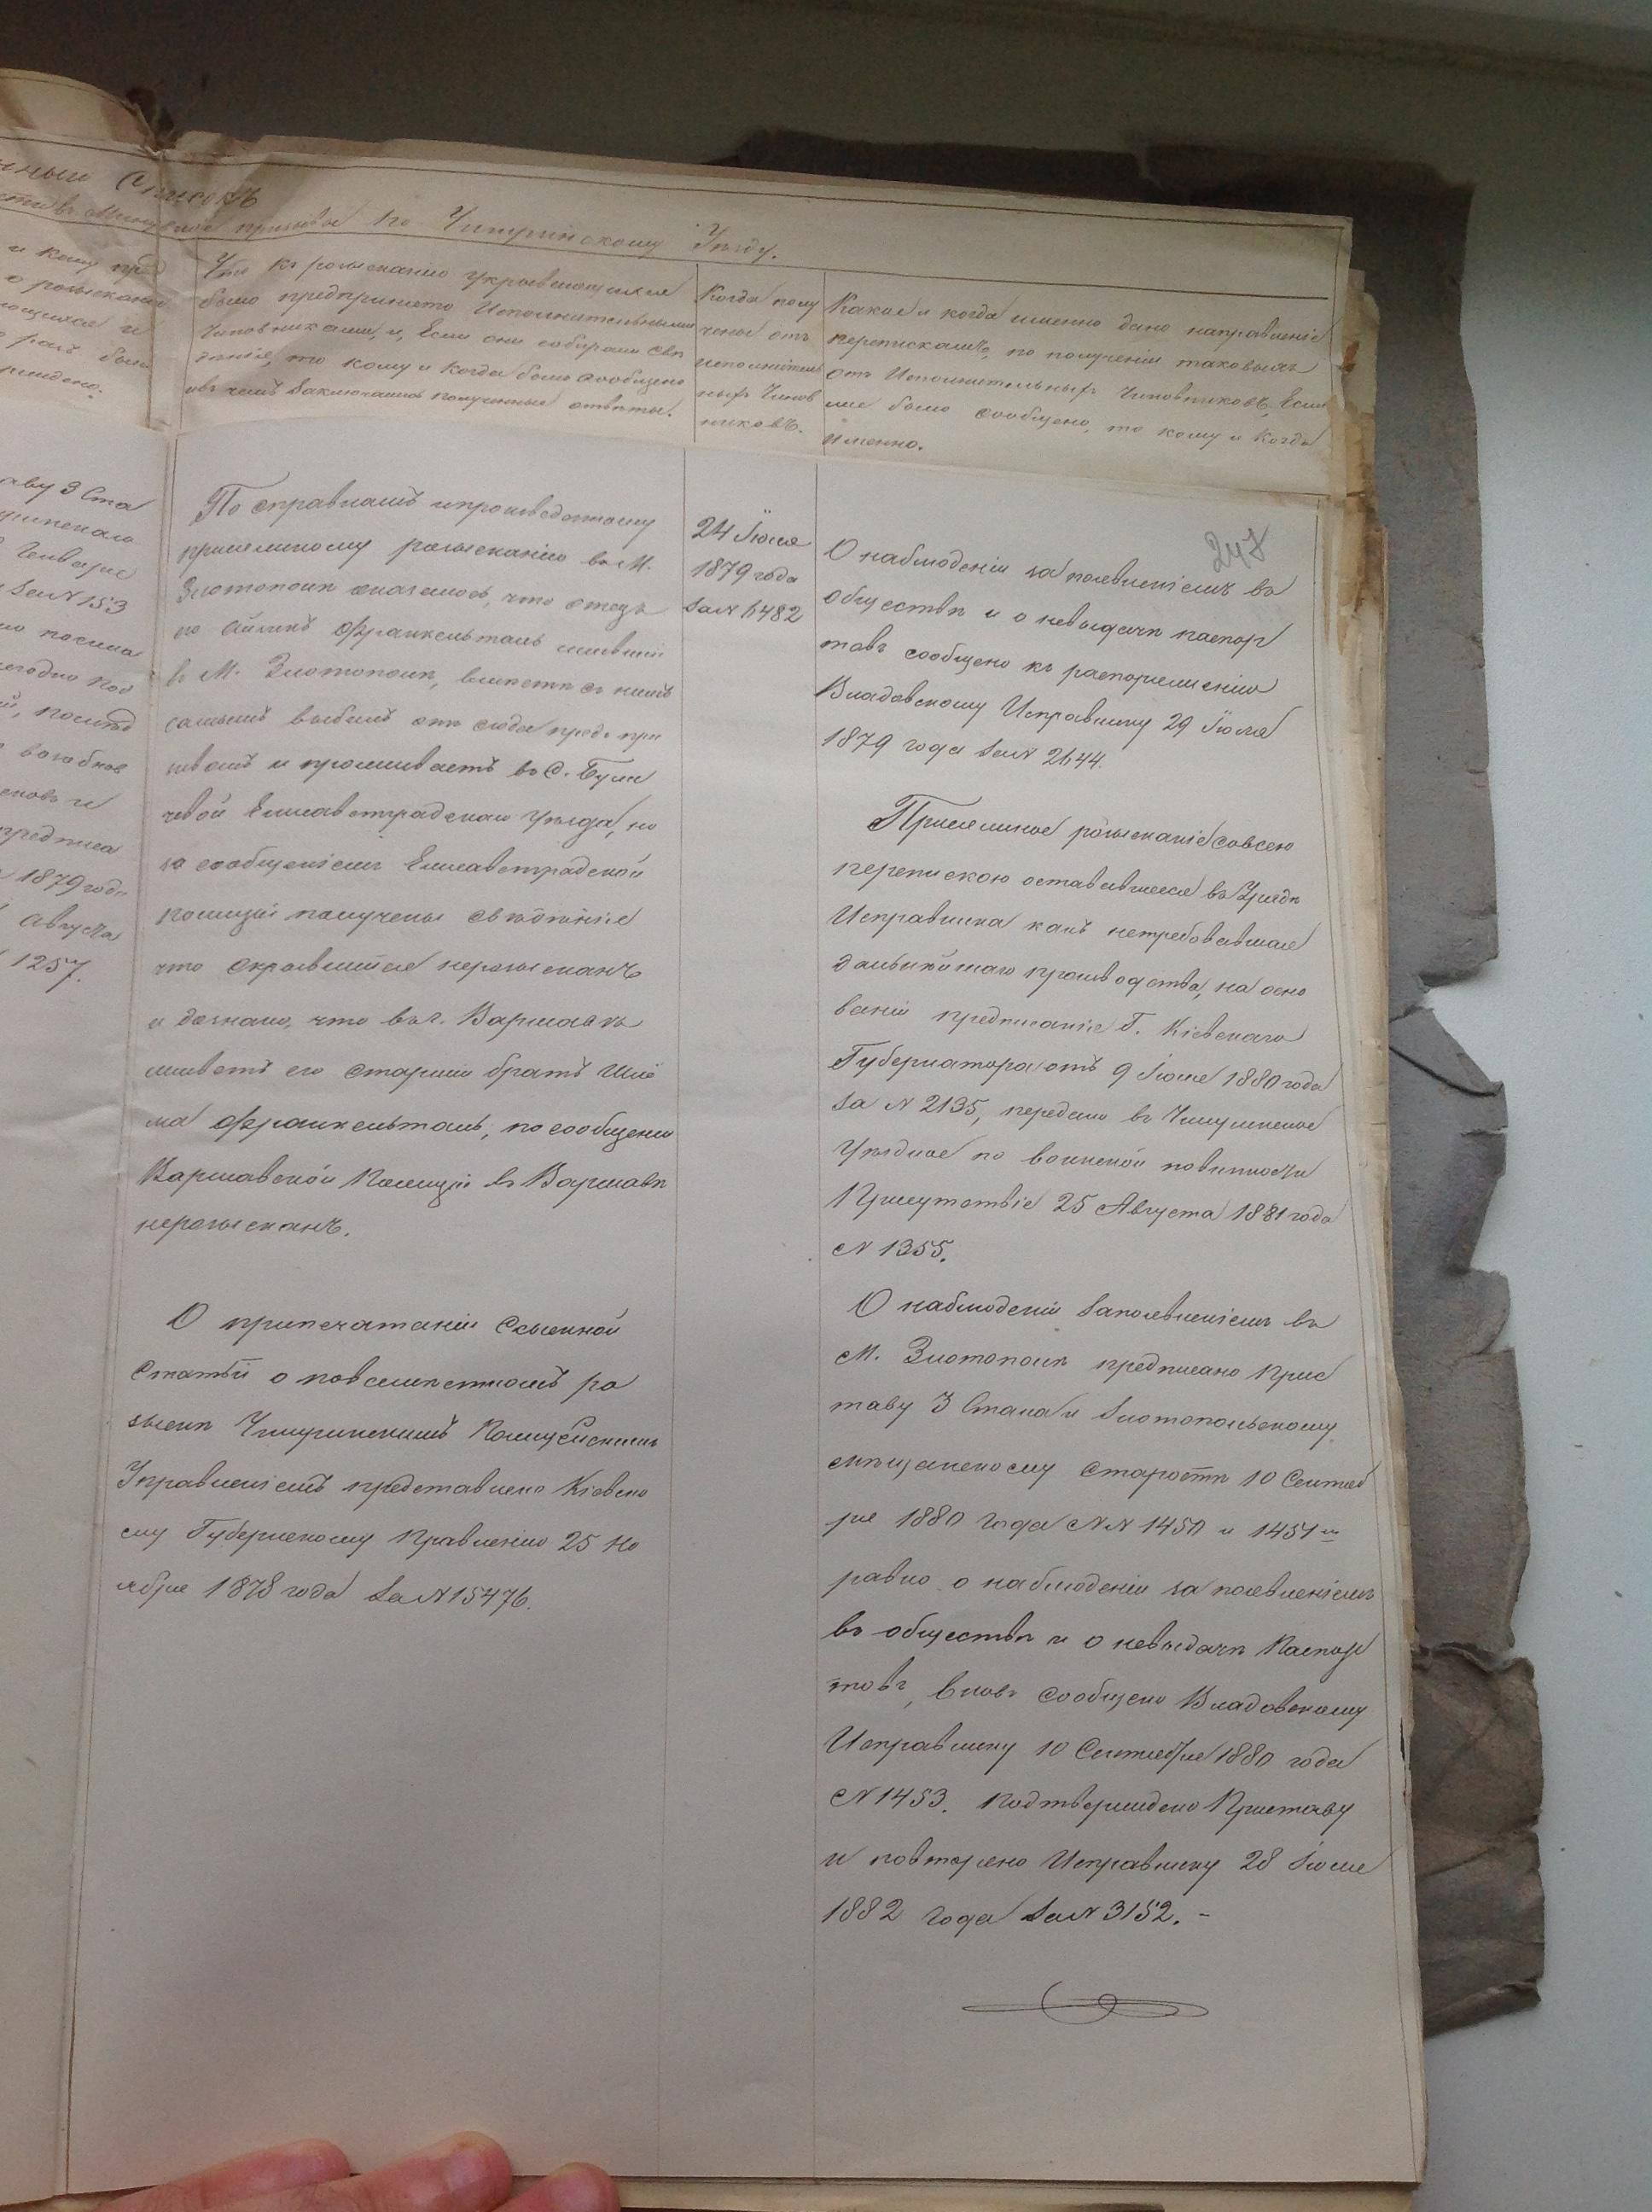 нный Списокъ
призыва по Чигиринскому Уѣзду.
и кому пред
о розысканіи
ющихся и
разъ было
верждено.
Что къ розысканію укрывающихся
было предпринято Исполнительными
Чиновниками, и, если они собирали свѣ
дѣнія, то кому и когда было сообщено
и въ чемъ заключались полученные отвѣты.
Когда полу
чены отъ
исполнитель
ныхъ Чинов
никовъ.
Какое и когда именно дано направленіе
перепискамъ, по полученіи таковыхъ
отъ Исполнительныхъ Чиновниковъ, Если
же было сообщено, то кому и когда
именно.
аву 3 Ста
гринскаго
Генваря
за N 153
предписа
1879 года
Августа
1257.
По справкамъ и произведенному
приселиному розысканію въ М.
Златополѣ оказалось, что отецъ
его Франкельталь жившій
въ М. Златополѣ, вмѣстѣ съ нимъ
самымъ выбылъ отъ сюда предъ при
зывомъ и проживаетъ въ С.
Елисаветградскаго уѣзда, но
за сообщеніемъ Елисаветградской
полиціи получены свѣдѣнія
что скрывшійся нерозысканъ
и дознано, что въ г. Варшавѣ
живетъ его старшій братъ Шлё
ма Франкельталь, по сообщенію
Варшавской Полиціи въ Варшавѣ
нерозысканъ.
О припечатаніи Сыскной
Статьи о повсемѣстномъ ро
зыскѣ Чигиринскимъ Полицейскимъ
Управленіемъ представлено Кіевско
му Губернскому Правленію 25 Но
ября 1878 года за N 15476.
24 Іюля
1879 года
за N 6482
247
О наблюденіи за появленіемъ въ
обществѣ и о невыдачѣ паспор
товъ сообщено къ распоряженію
Владавскому Исправнику 29 Іюля
1879 года за N 2644.
Приселиное розысканіе со всею
перепискою оставшееся въ Уѣздн
Исправника какъ нетребовавшая
дальнѣйшаго производства, на осно
ваніи предписанія Г. Кіевскаго
Губернатора отъ 9 Іюля 1880 года
за N 2135, передано въ Чигиринское
Уѣздное по воинской повинности
Присутствіе 25 Августа 1881 года
N 1355.
О наблюденіи за появленіемъ въ
М. Златополѣ предписано Прис
таву 3 Стана и Златопольскому
мѣщанскому старостѣ 10 Сентяб
ря 1880 года NN 1450 и 1451 и
равно о наблюденіи за появленіемъ
въ обществѣ и о невыдачѣ Паспор
товъ, вновь сообщено Владавскому
Исправнику 10 Сентября 1880 года
N 1453. Подтверждено Приставу
и повторено Исправнику 28 Іюля
1882 года за N 3152. -